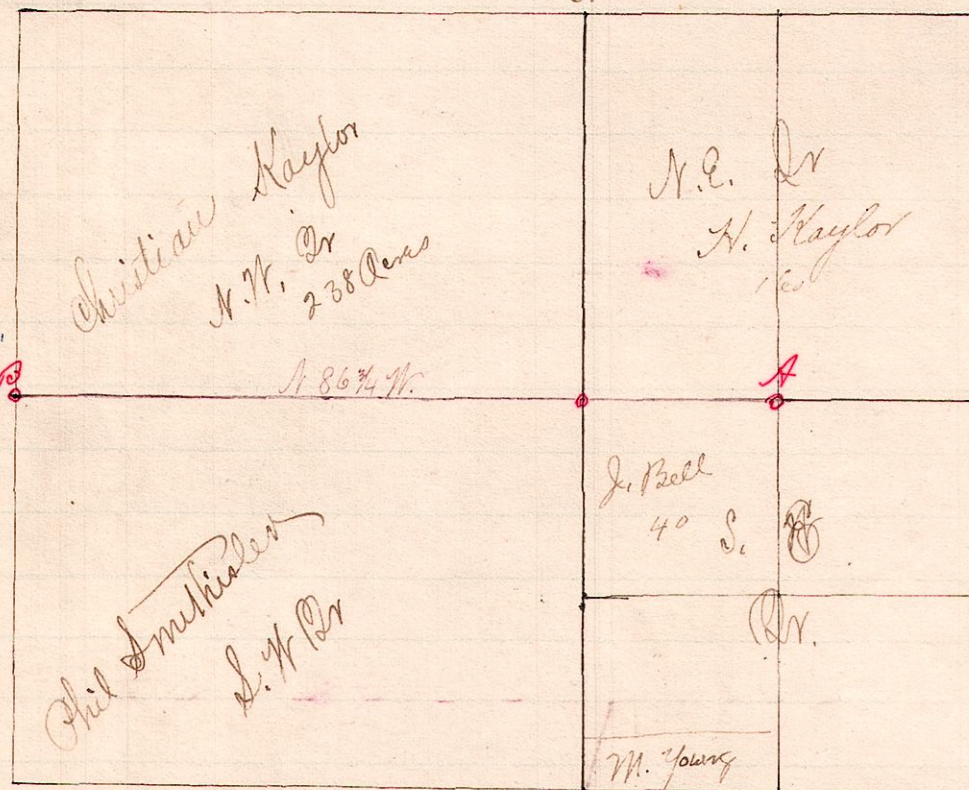 Christian Kaylor
N.W. Qr
238 Acres
N.E. Qr
H. Kaylor
160
B
N 86 3/4 W.
A
J. Bell
40
S. E
Qr.
Phil Smithisler
S.W Qr
M. Young